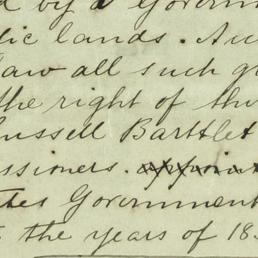 d by a Governm
lic lands. Au
law all such g
the right of th
Russell Bartlet
ssioners.
tes Government
the years of 18